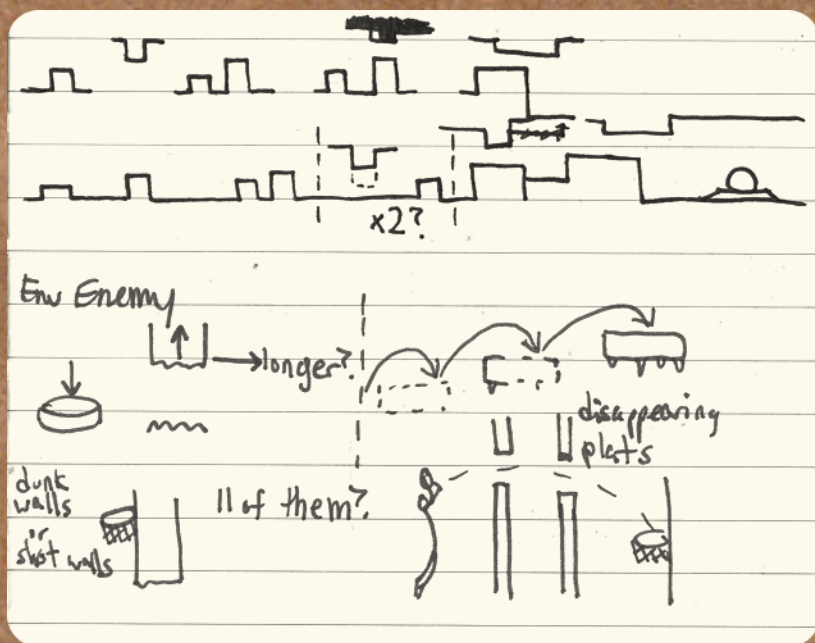 x2?
Env Enemy
longer?
disappearing
plats
dunk
walls
or
shot walls
11 of them?